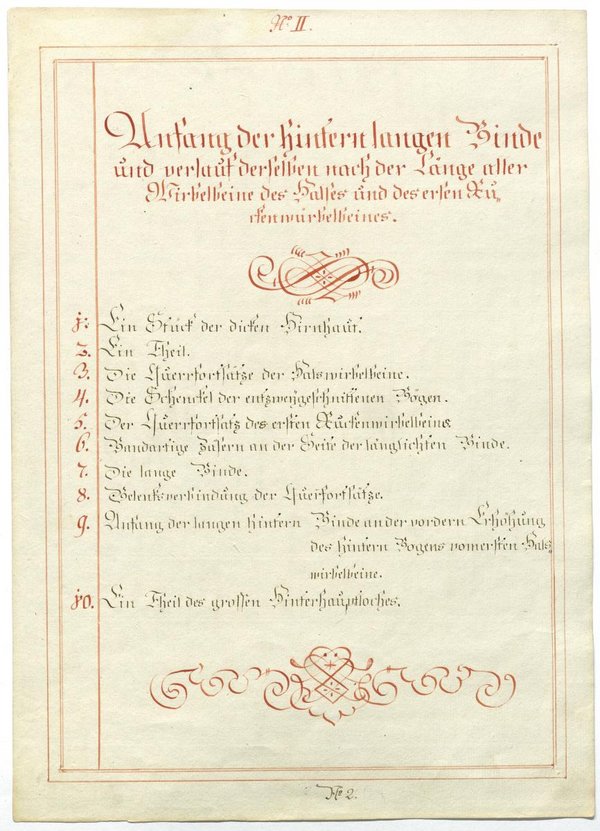 No. II.
Anfang der hintern langen Binde
und verlauf derselben nach der Länge aller
Wirbelbeine des Halses und des ersten Ru„
ckenwürbelbeines.
1. Ein Stück der dicken Hirnhaut.
2. Ein Theil.
3. Die Querrfortsätze der Halswirbelbeine.
4. Die Schenckel der entzweÿgeschnittenen Bögen.
5. Der Querrfortsatz des ersten Ruckenwirbelbeins
6. Bandartige Zasern an der Seite der länglichten Binde.
7. Die lange Binde.
8. Gelenksverbindung der Querfortsätze.
9. Anfang der langen hintern Binde an der vordern Erhöhung
des hintern Bogens vom ersten Hals„
wirbelbeine.
10. Ein Theil des grossen Hinterhauptloches.
No 2.